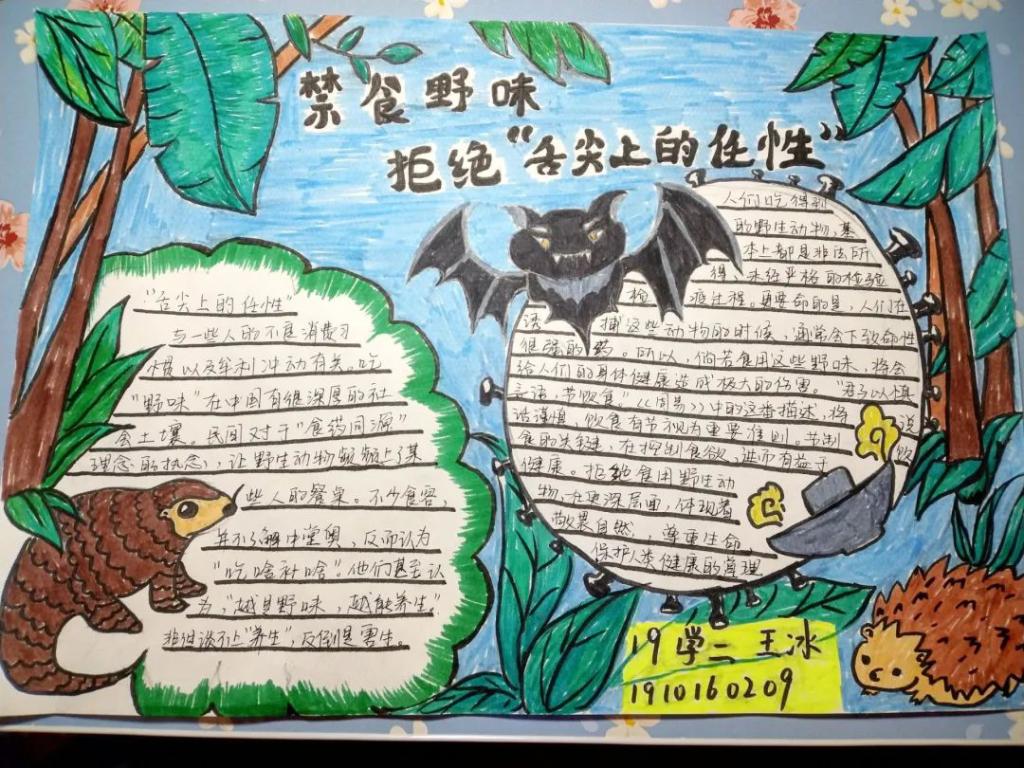 禁食野味
拒绝“舌尖上的任性”
“舌尖上的任性”
与一些人的不良消费习
惯以及牟利冲动有关。吃
“野味”在中国有很深厚的社
会土壤。民间对于“食药同源”
理念的执念，让野生动物频频上了某
些人的餐桌。不少食客，
并不了解中堂奥，反而认为
“吃啥补啥”。他们甚至认
为，“越是野味，越能养生。”
非但谈不上“养生”，反倒是害生。
人们吃得到
的野生动物，基
本上都是非法所
得，未经严格的检验
检疫过程。更要命的是，人们在
诱捕这些动物的时候，通常会下致命性
很强的药。所以，倘若食用这些野味，将会
给人们的身体健康造成极大的伤害。“君子以慎
言语，节饮食”《周易》中的这番描述，将说
话谨慎，饮食有节视为重要准则。节制饮
食的关键，在控制食欲，进而有益于
健康。拒绝食用野生动
物，在更深层面，体现着
敬畏自然，尊重生命，
保护人类健康的管理
19学二 王冰
1910160209